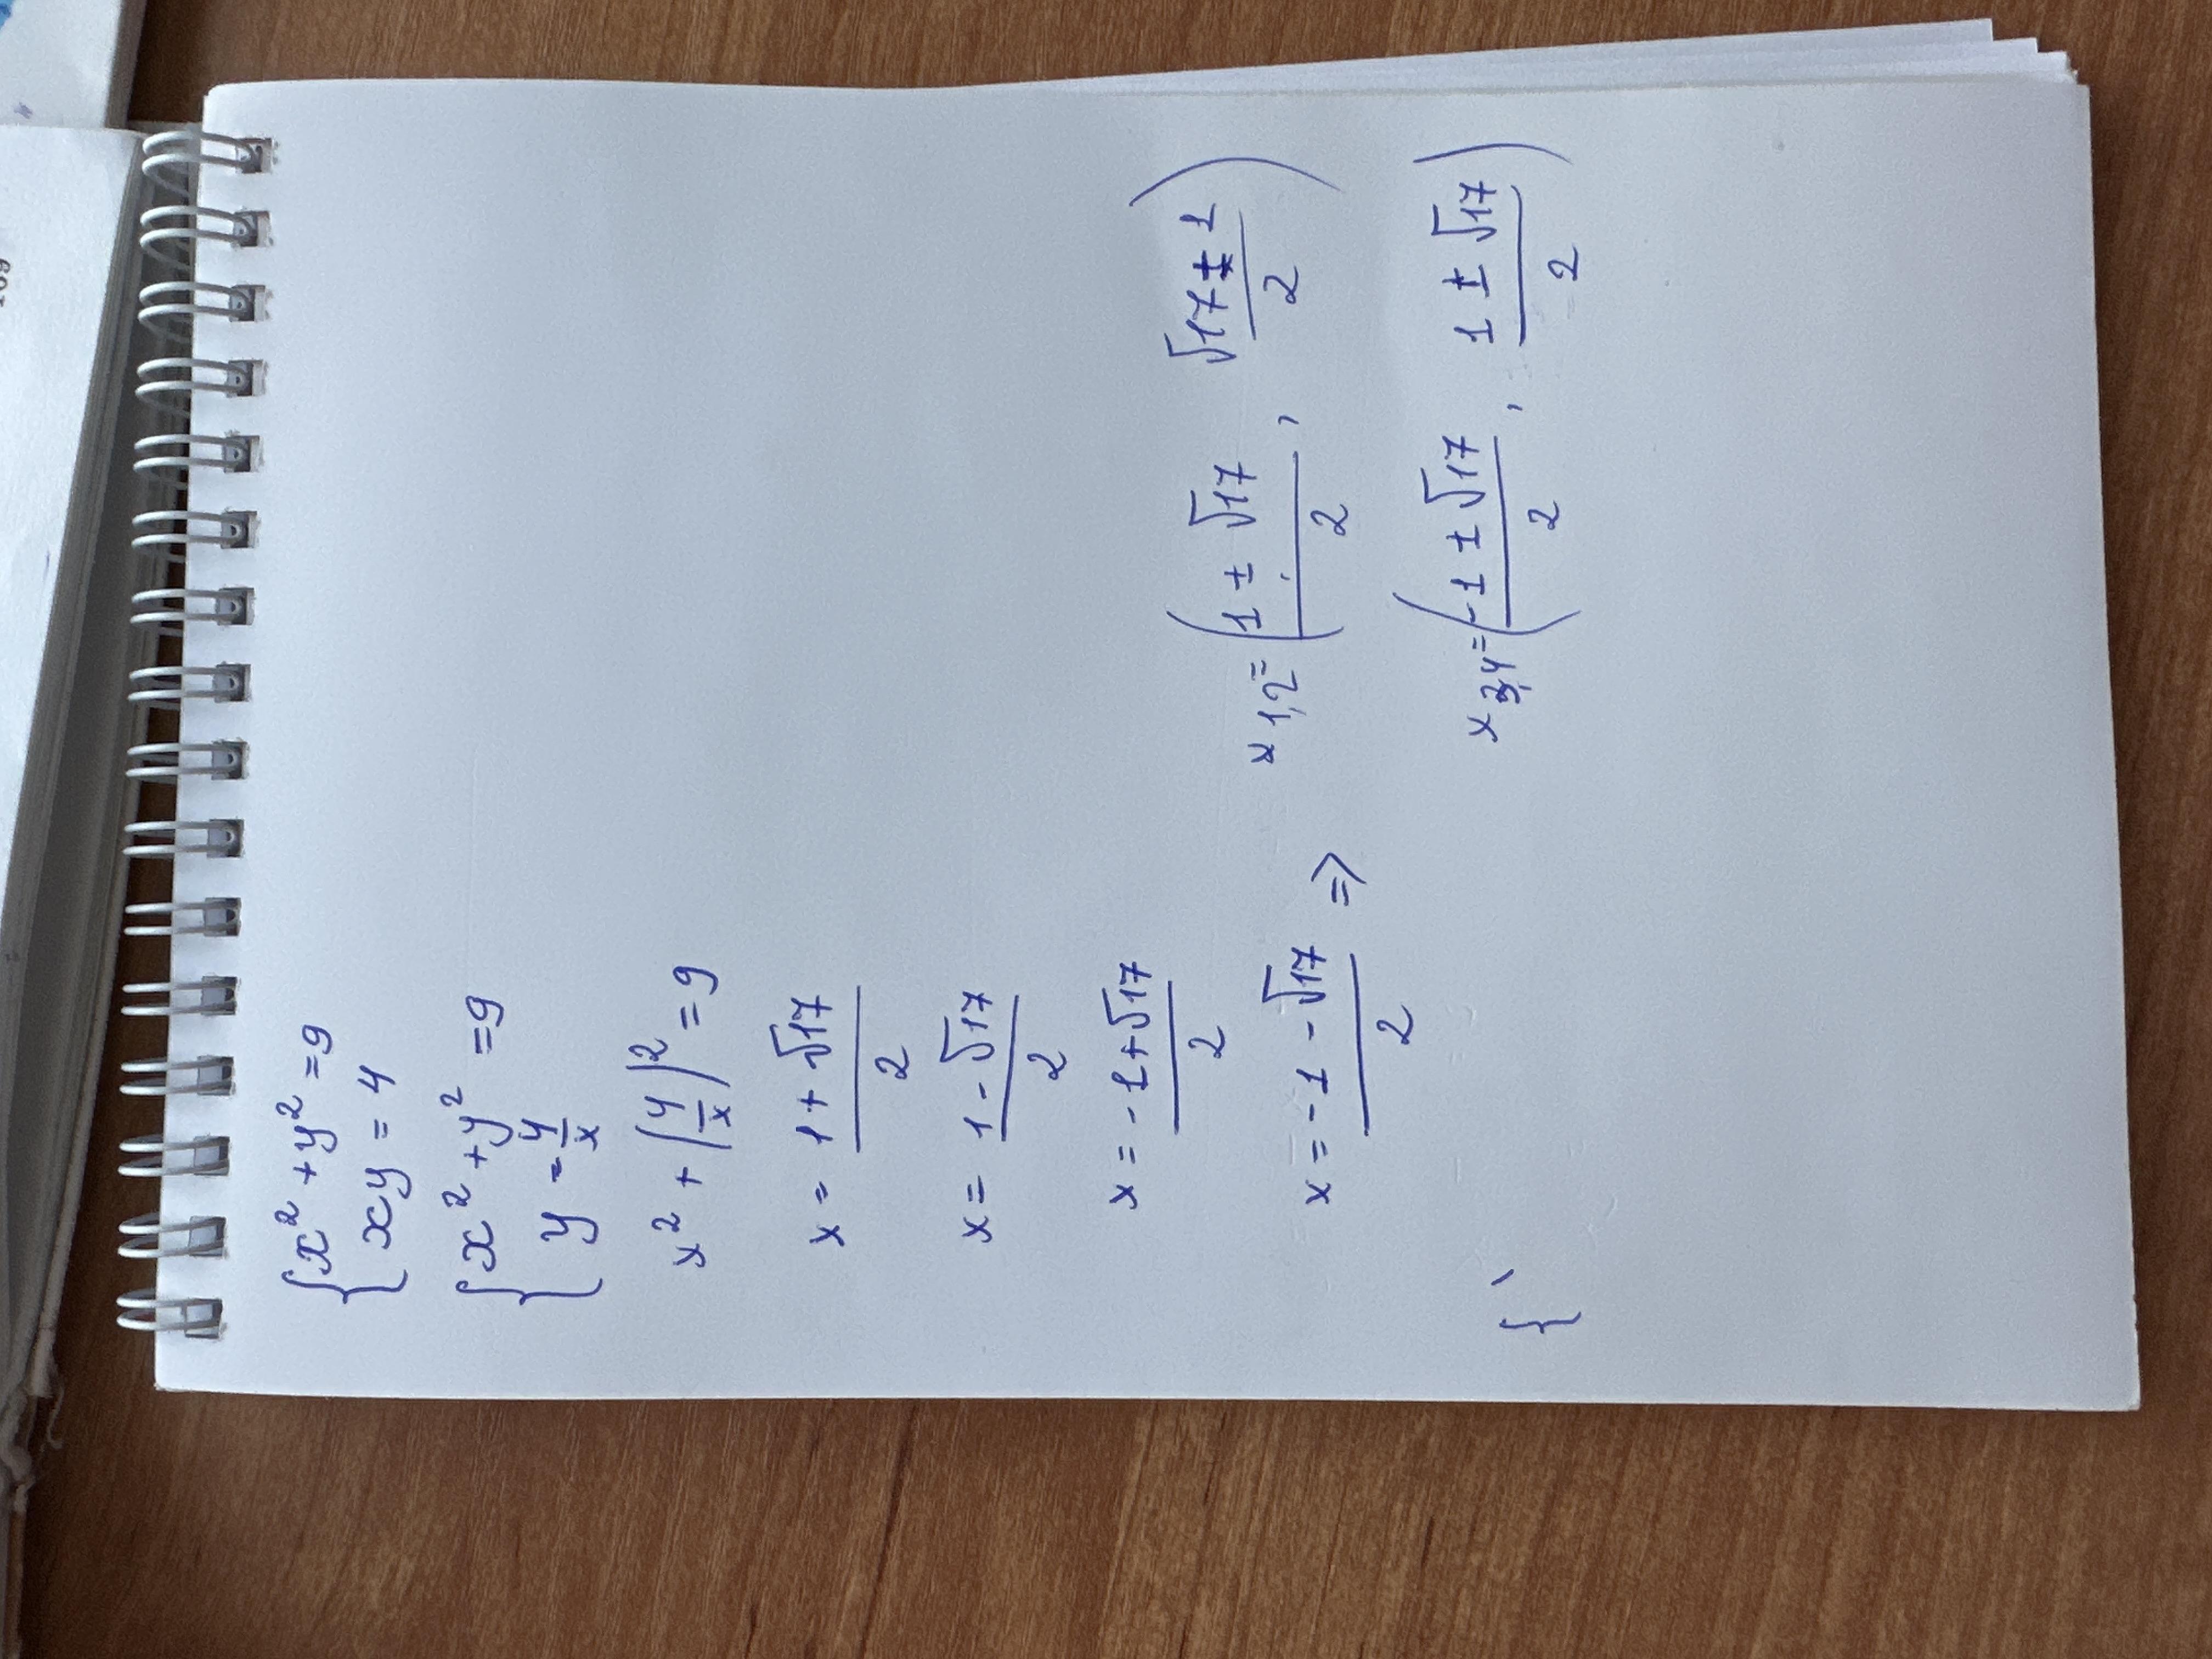 {x² + y² = 9
xy = 4
{x² + y² = 9
y = 4/x
x² + (4/x)² = 9
x = (1 + √17)/2
x = (1 - √17)/2
x = (-1 + √17)/2
x = (-1 - √17)/2 =>
x 1,2 = ((1 ± √17)/2, (√17 ± 1)/2)
x 3,4 = ((-1 ± √17)/2, (1 ± √17)/2)
{